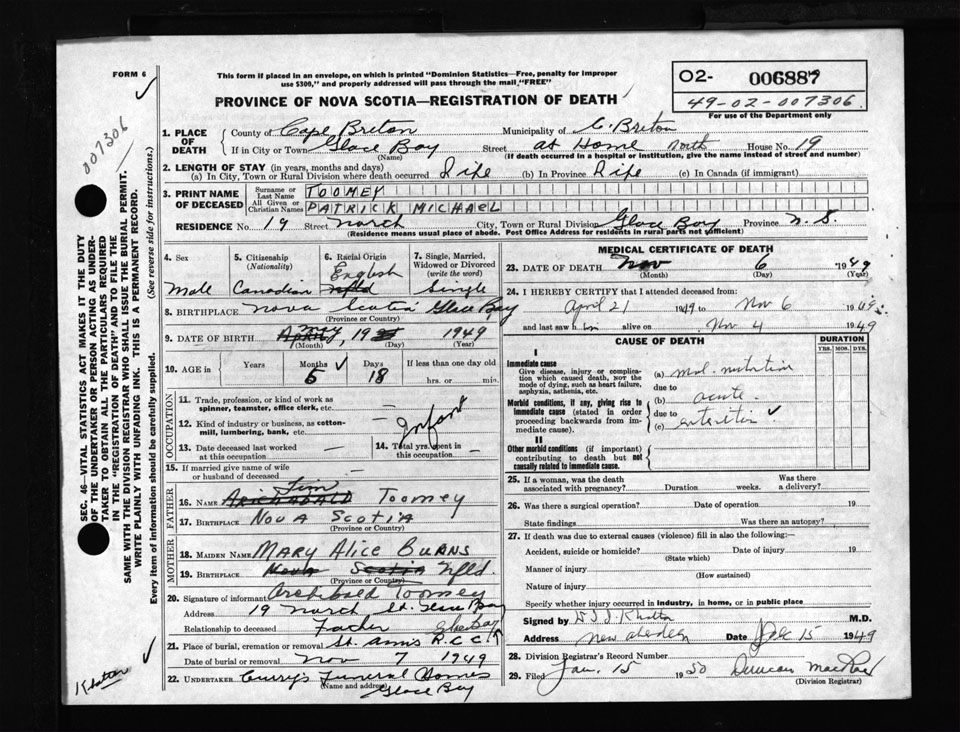 FORM 6
This form if placed in an envelope, on which is printed "Dominion Statistics—Free, penalty for improper
use $300," and properly addressed will pass through the mail "FREE"
PROVINCE OF NOVA SCOTIA—REGISTRATION OF DEATH
O2- 006887
49-02-007306
For use of the Department only
007306
SEC. 46—VITAL STATISTICS ACT MAKES IT THE DUTY
OF THE UNDERTAKER OR PERSON ACTING AS UNDER-
TAKER TO OBTAIN ALL THE PARTICULARS REQUIRED
IN THE "REGISTRATION OF DEATH" AND TO FILE THE
SAME WITH THE DIVISION REGISTRAR WHO SHALL ISSUE THE BURIAL PERMIT.
WRITE PLAINLY WITH UNFADING INK. THIS IS A PERMANENT RECORD.
Every item of information should be carefully supplied. (See reverse side for instructions.)
1. PLACE OF DEATH
County of Cape Breton Municipality of C. Breton
If in City or Town Glace Bay Street at Home House No. 19
(Name) (If death occurred in a hospital or institution, give the name instead of street and number)
2. LENGTH OF STAY (in years, months and days)
(a) In City, Town or Rural Division where death occurred Life (b) In Province Life (c) In Canada (if immigrant)
3. PRINT NAME OF DECEASED
Surname or Last Name TOOMEY
All Given or Christian Names PATRICK MICHAEL
RESIDENCE No. 19 Street March City, Town or Rural Division Glace Bay Province N.S.
(Residence means usual place of abode. Post Office Address for residents in rural parts not sufficient)
4. Sex 5. Citizenship (Nationality) 6. Racial Origin 7. Single, Married, Widowed or Divorced (write the word)
English
Male Canadian Nfld Single
8. BIRTHPLACE Nova Scotia Glace Bay
(Province or Country)
9. DATE OF BIRTH May 19 1949
(Month) (Day) (Year)
10. AGE in Years Months Days If less than one day old
5 18 hrs. or min.
OCCUPATION
11. Trade, profession, or kind of work as
spinner, teamster, office clerk, etc.
12. Kind of industry or business, as cotton-
mill, lumbering, bank, etc.
Infant
13. Date deceased last worked at this occupation
14. Total yrs. spent in this occupation
15. If married give name of wife
or husband of deceased
FATHER
Jim
16. NAME ARCHIBALD TOOMEY
17. BIRTHPLACE NOVA SCOTIA
(Province or Country)
MOTHER
18. MAIDEN NAME MARY ALICE BURNS
19. BIRTHPLACE Nova Scotia Nfld.
(Province or Country)
20. Signature of informant Archibald Toomey
Address 19 March St. Glace Bay
Relationship to deceased Father Glace Bay
21. Place of burial, cremation or removal St. Anns R.C.C.
Date of burial or removal Nov 7 1949
22. UNDERTAKER Curry's Funeral Homes
(Name and address) Glace Bay
MEDICAL CERTIFICATE OF DEATH
23. DATE OF DEATH Nov 6 1949
(Month) (Day) (Year)
24. I HEREBY CERTIFY that I attended deceased from:
April 21 1949 to Nov 6 1949
and last saw him alive on Nov 4 1949
CAUSE OF DEATH DURATION
YRS. MOS. DYS.
I
Immediate cause
Give disease, injury or complica-
tion which caused death, NOT the
mode of dying, such as heart failure,
asphyxia, asthenia, etc.
(a) mal-nutrition
due to
(b) acute
Morbid conditions, if any, giving rise to
immediate cause (stated in order
proceeding backwards from im-
mediate cause).
due to
(c) enteritis
II
Other morbid conditions (if important)
contributing to death but not
causally related to immediate cause.
25. If a woman, was the death associated with pregnancy? Duration weeks. Was there a delivery?
26. Was there a surgical operation? Date of operation 19
State findings Was there an autopsy?
27. If death was due to external causes (violence) fill in also the following:—
Accident, suicide or homicide? Date of injury 19
(State which)
Manner of injury
(How sustained)
Nature of injury
Specify whether injury occurred in industry, in home, or in public place
Signed by M.D.
Address New Aberdeen Date Dec 15 1949
28. Division Registrar's Record Number
29. Filed Jan. 15 1950 Duncan MacRae
(Division Registrar)